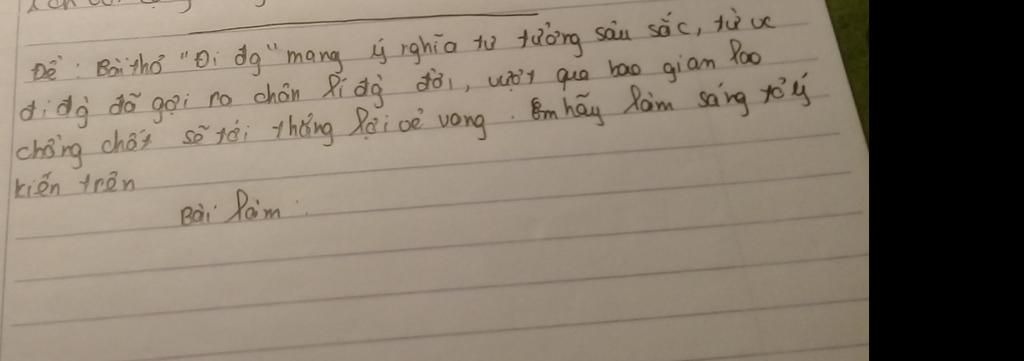 Đề : Bài thơ "Đi đg" mang ý nghĩa tư tưởng sâu sắc, từ vc
đi đg đã gợi ra chân lí đg đời, vượt qua bao gian lao
chồng chất sẽ tới thắng lợi vẻ vang. Em hãy làm sáng tỏ ý
kiến trên
Bài làm.